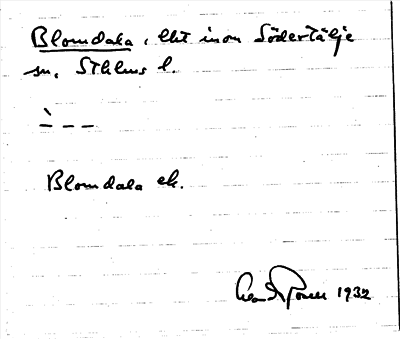 Blomdala, lht inom Södertälje
sn, Sthlms l.
Blomdala ek.
1932